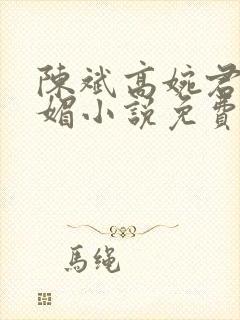 陳斌高婉君
媚小說免費
馬绳